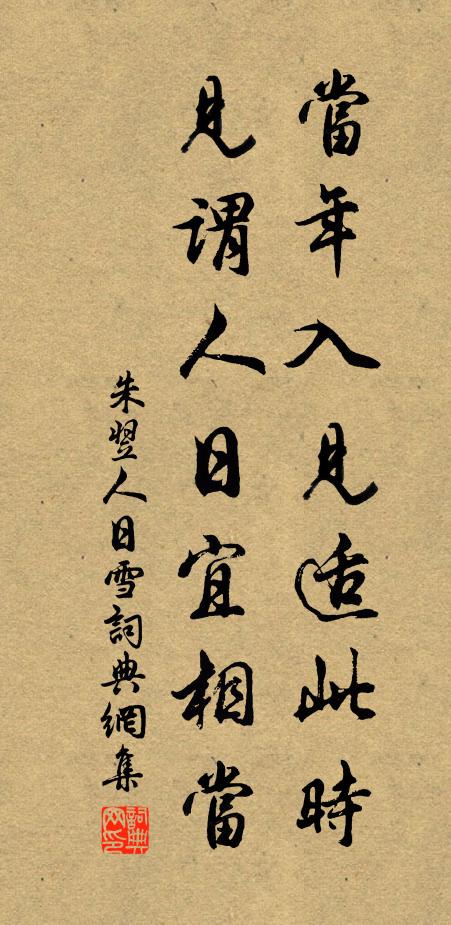 當年入見適此時
見謂人日宜相當
朱翌人日雪詞典網集
詞典网印